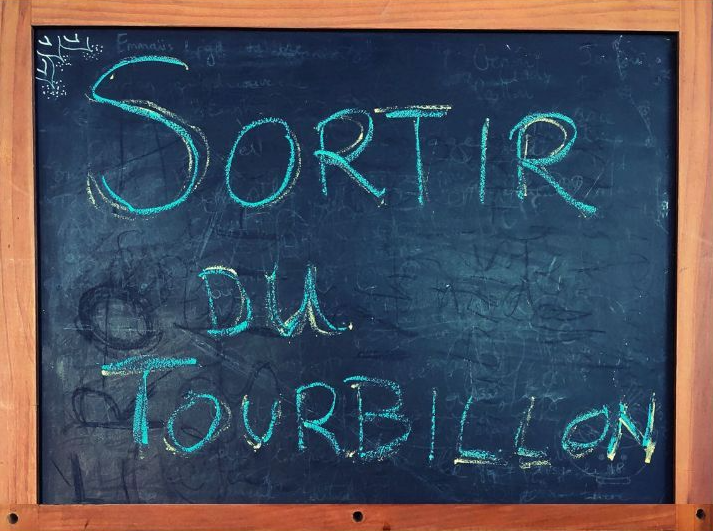 SORTIR
DU
TOURBILLON